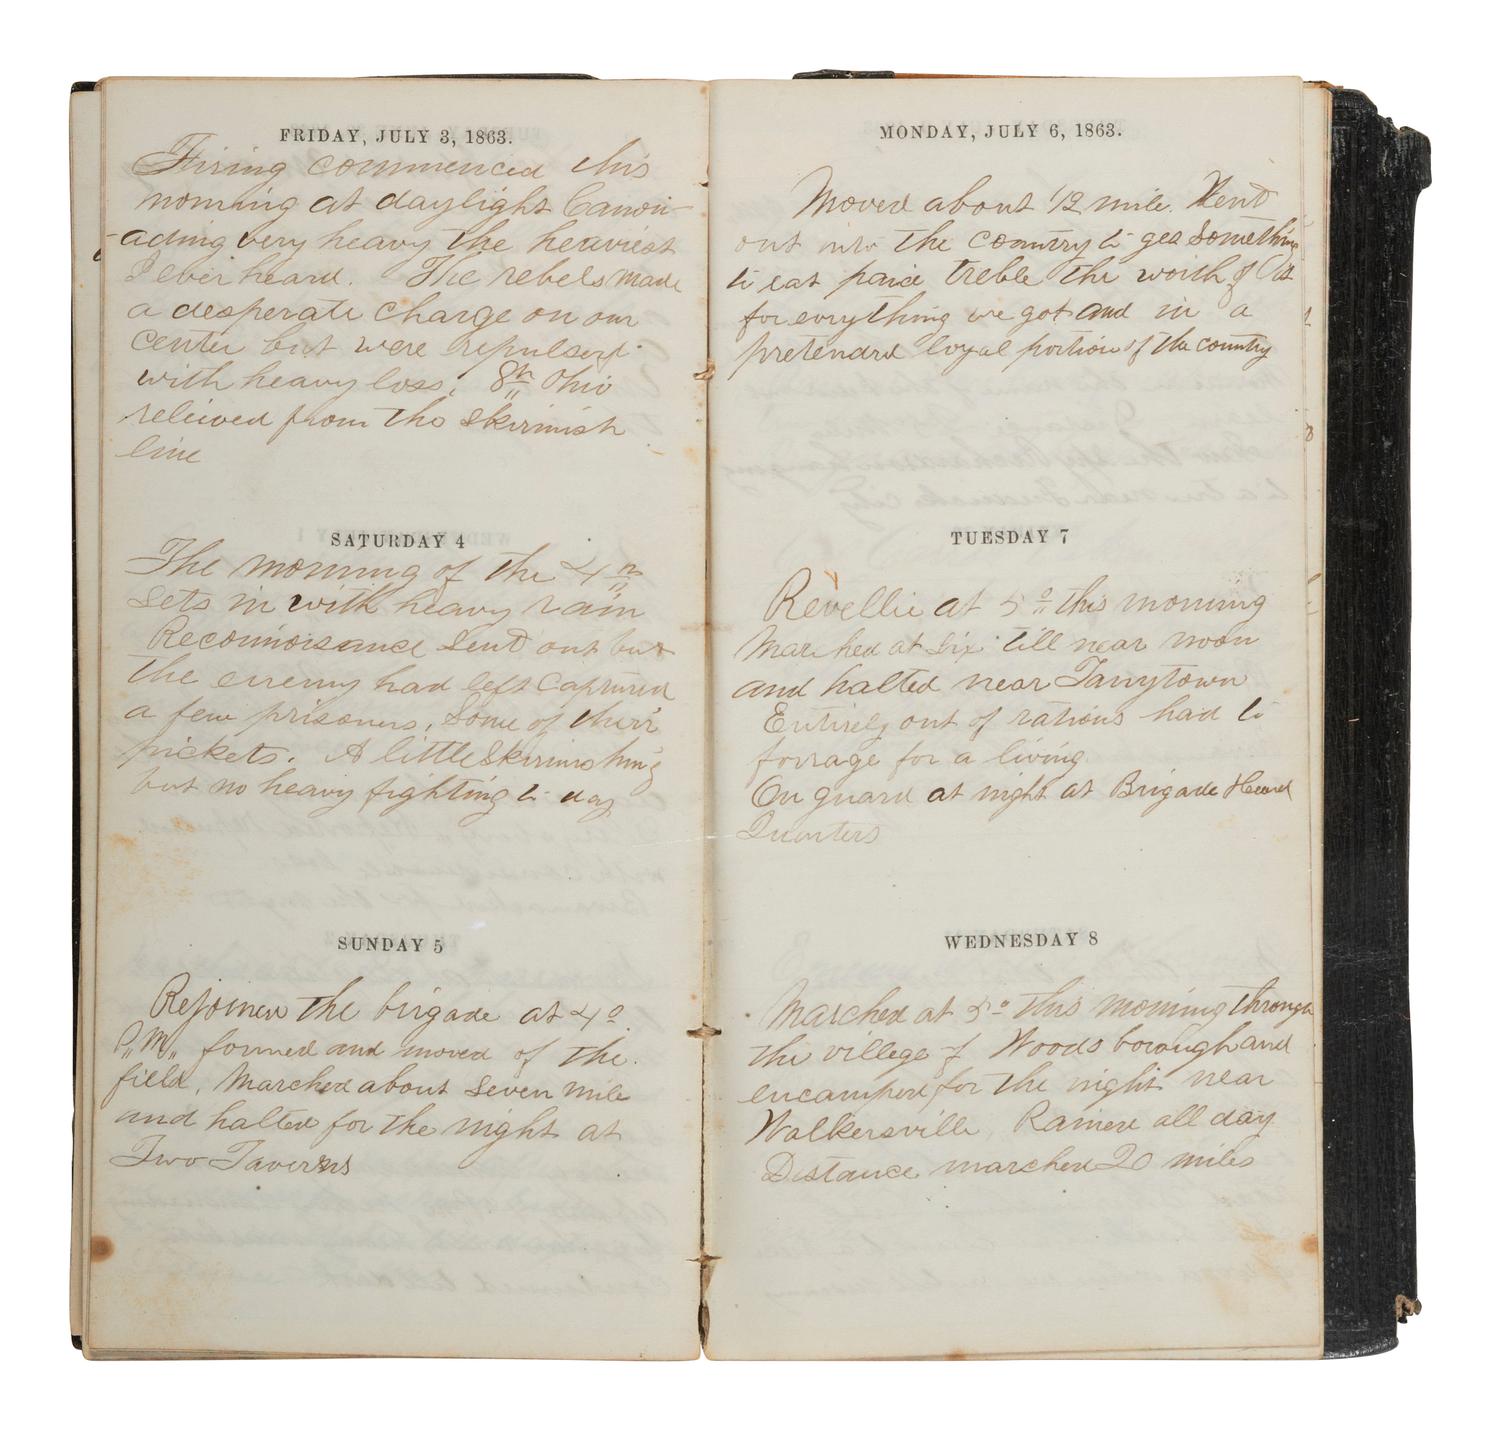 FRIDAY, JULY 3, 1863.
Firing commenced this
morning at daylight Canon-
ading very heavy the heaviest
I ever heard. The rebels made
a desperate charge on our
center but were repulsed
with heavy loss. 8th Ohio
releived from the skirmish
line
SATURDAY 4
The morning of the 4th
sets in with heavy rain
Reconnoisance sent out but
the enemy had left captured
a few prisoners. Some of their
pickets. A little skirmishing
but no heavy fighting to day
SUNDAY 5
Rejoined the brigade at 4o
P.M. formed and moved of the
field. Marched about seven mile
and halted for the night at
Two Taverns
MONDAY, JULY 6, 1863.
Moved about 1/2 mile. Went
out into the country to get something
to eat paid treble the worth of it
for everything we got and in a
pretended loyal portion of the country
TUESDAY 7
Revellie at 5o this morning
Marched at six till near noon
and halted near Tanytown
Entirely out of rations had to
forrage for a living
On guard at night at Brigade Head
Quarters
WEDNESDAY 8
Marched at 5o this morning through
the villege of Woodsborough and
encamped for the night near
Walkersville Rained all day
Distance marched 20 miles